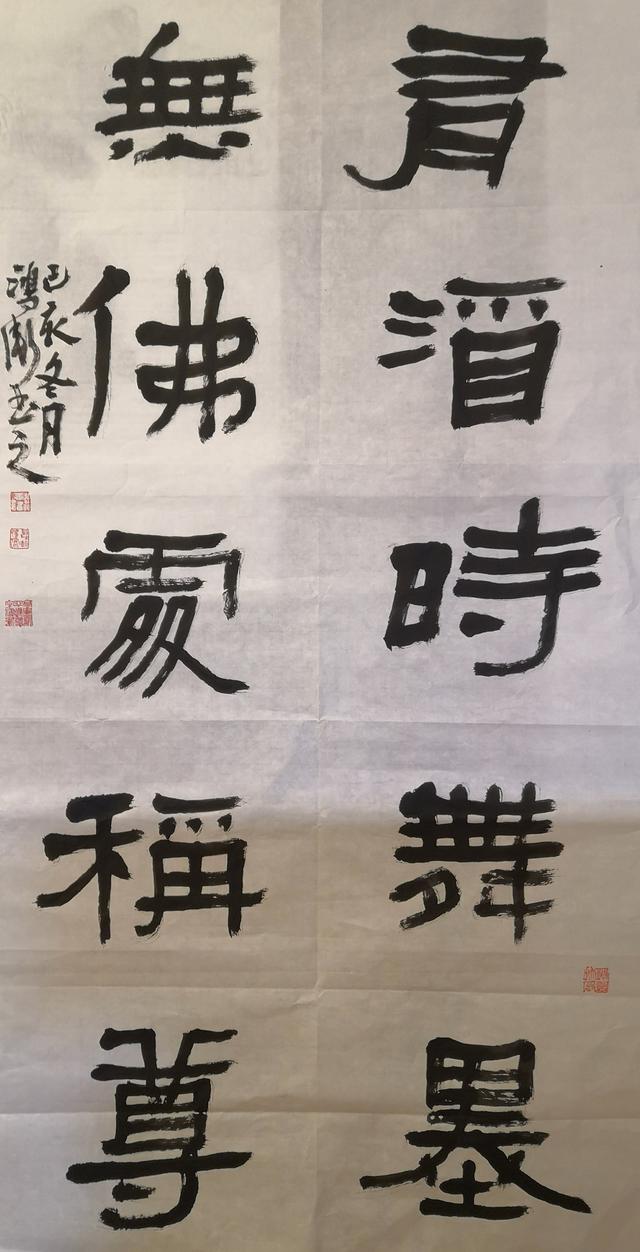 有酒時舞墨
無佛處稱尊
己亥冬月
鴻书之